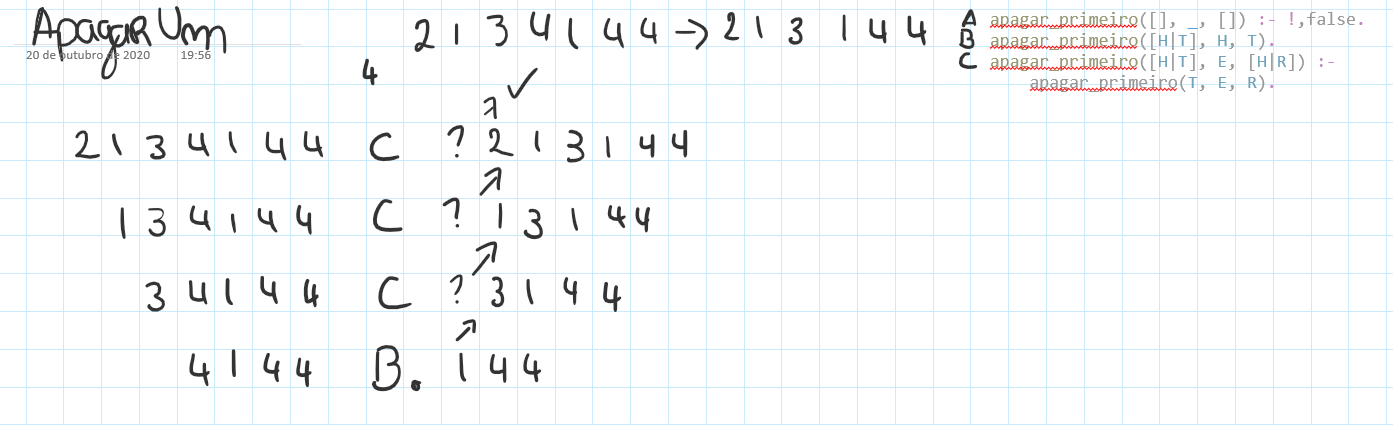 Apagar Um
20 de outubro de 2020 19:56
2 1 3 4 1 4 4 → 2 1 3 1 4 4
A apagar_primeiro([], _, []) :- !,false.
B apagar_primeiro([H|T], H, T).
C apagar_primeiro([H|T], E, [H|R]) :-
apagar_primeiro(T, E, R).
4
↗ ✓
2 1 3 4 1 4 4 C ? 2 1 3 1 4 4
↗
1 3 4 1 4 4 C ? 1 3 1 4 4
↗
3 4 1 4 4 C ? 3 1 4 4
↗
4 1 4 4 B. 1 4 4